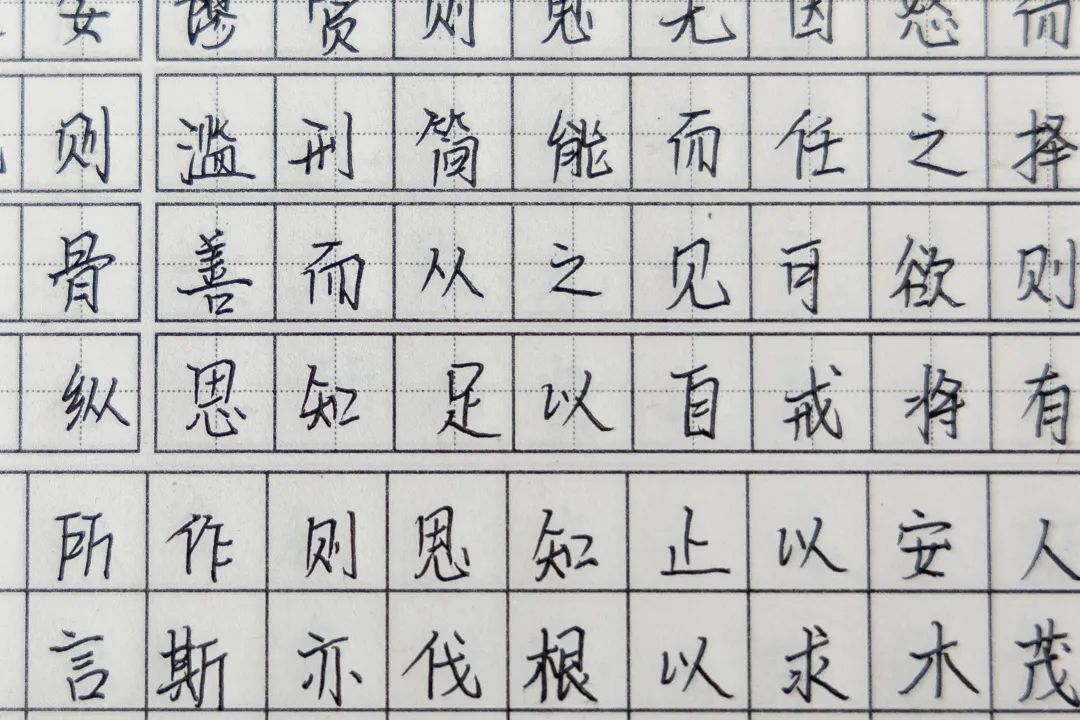 安谬赏则思无因怒而
则滥刑简能而任之择
骨善而从之见可欲则
纵思知足以自戒将有
所作则思知止以安人
言斯亦伐根以求木茂